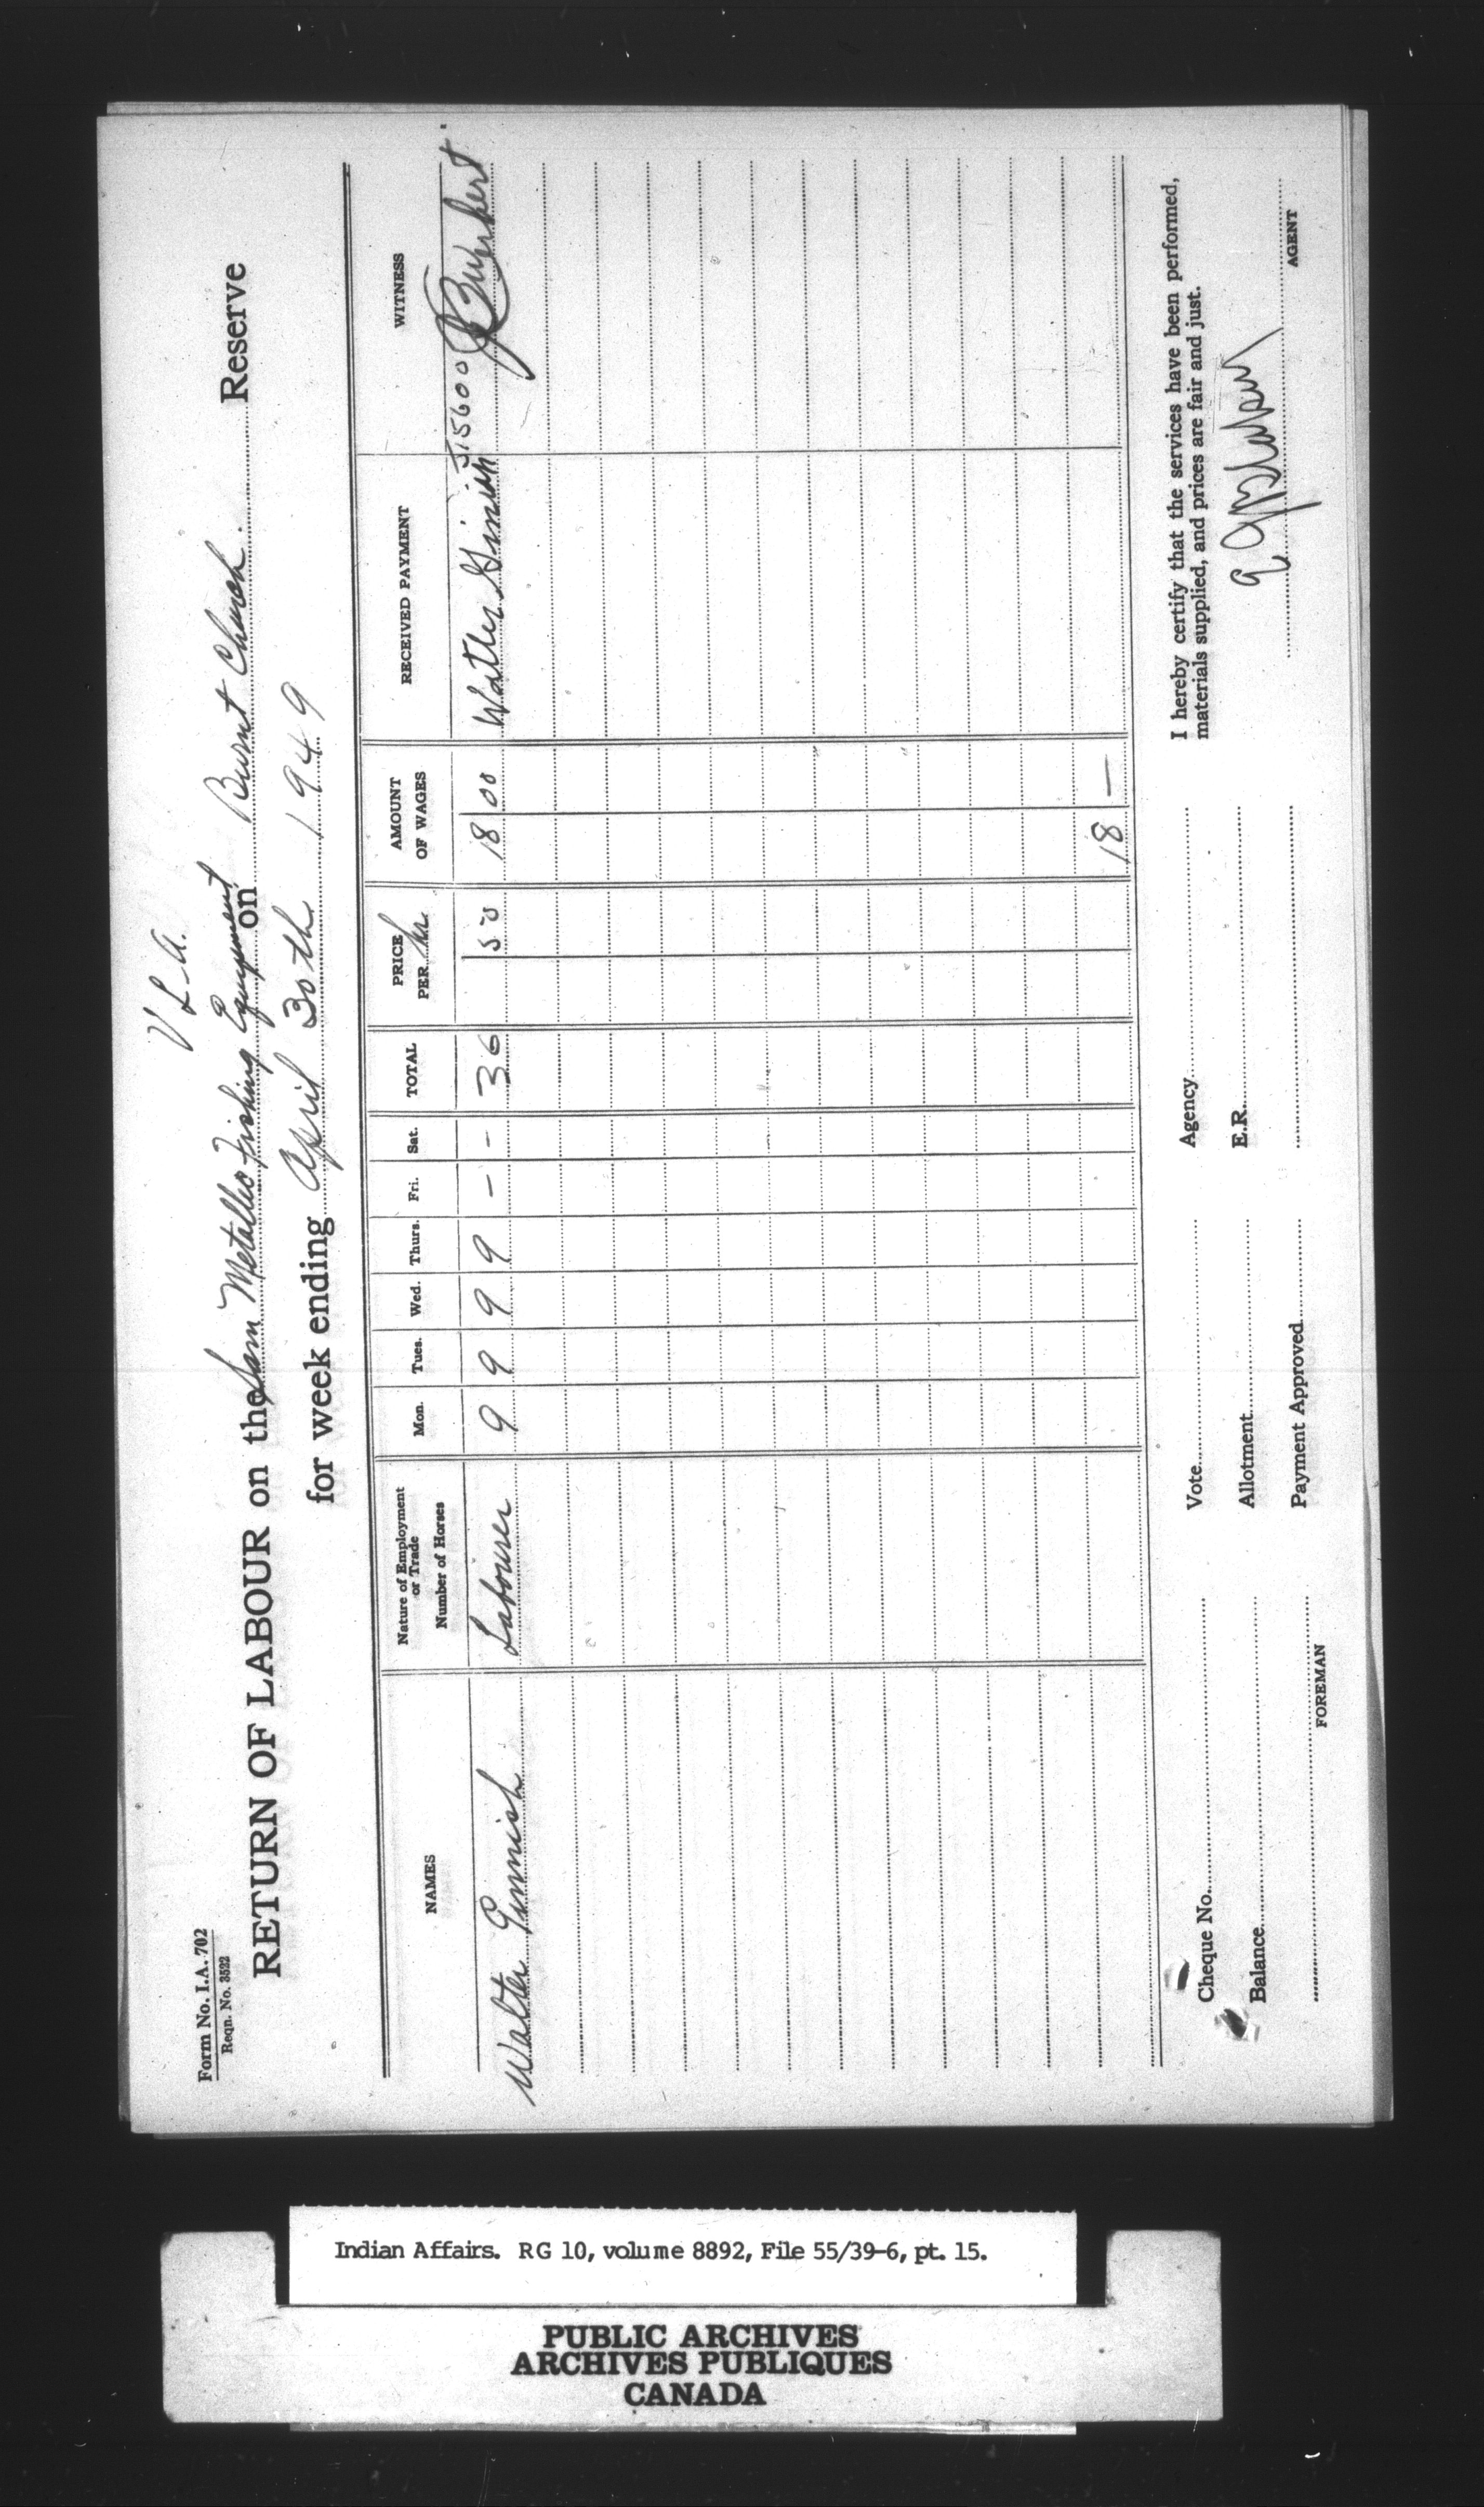 Form No. I.A. 702
Reqn. No. 3522
V L A.
RETURN OF LABOUR on the Sam Metallic Fishing Equipment on Burnt Church Reserve
for week ending April 30th 1949
NAMES Nature of Employment or Trade Number of Horses Mon. Tues. Wed. Thurs. Fri. Sat. TOTAL PRICE PER hr. AMOUNT OF WAGES RECEIVED PAYMENT WITNESS
Walter Ginnish Labourer 9 9 9 9 – – 36 50 18 00 Walter Ginnish
18 —
I hereby certify that the services have been performed,
materials supplied, and prices are fair and just.
Cheque No. Vote Agency
Balance Allotment E.R.
Payment Approved
FOREMAN
AGENT
Indian Affairs. RG 10, volume 8892, File 55/39-6, pt. 15.
PUBLIC ARCHIVES
ARCHIVES PUBLIQUES
CANADA